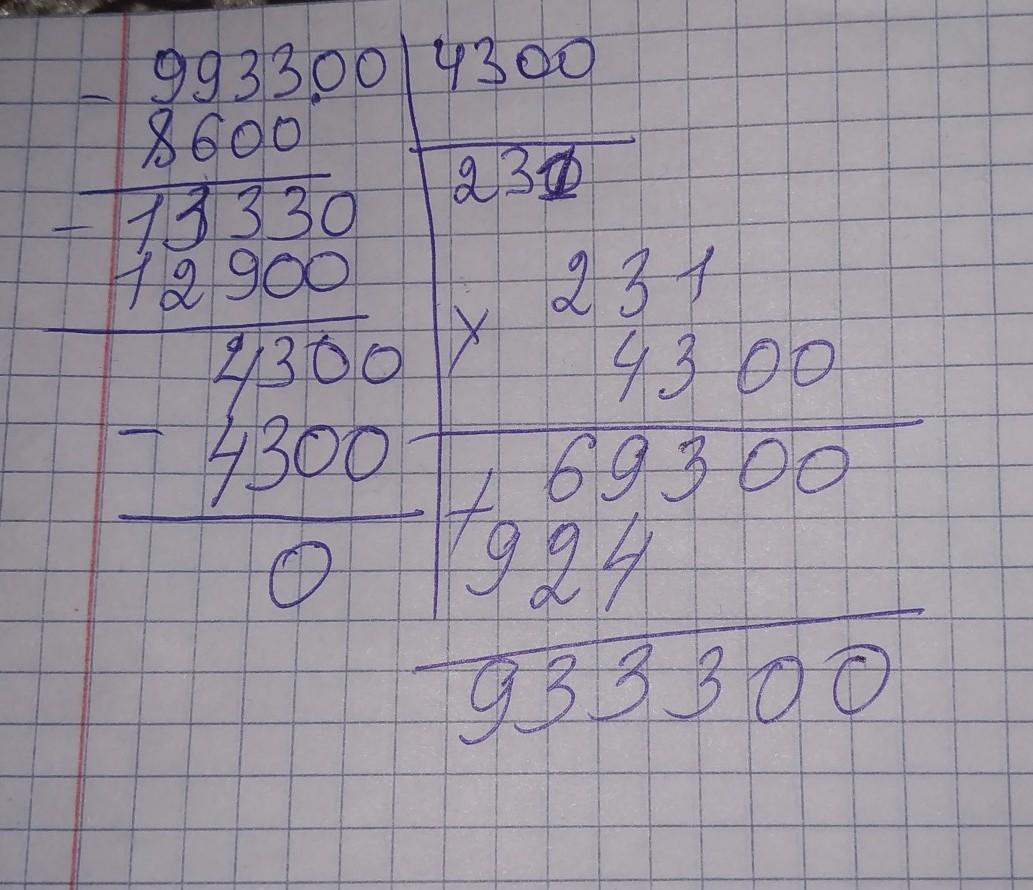 - 993300 | 4300
8600
231
- 13330
12900
4300
- 4300
0
231
x 4300
69300
+ 924
933300